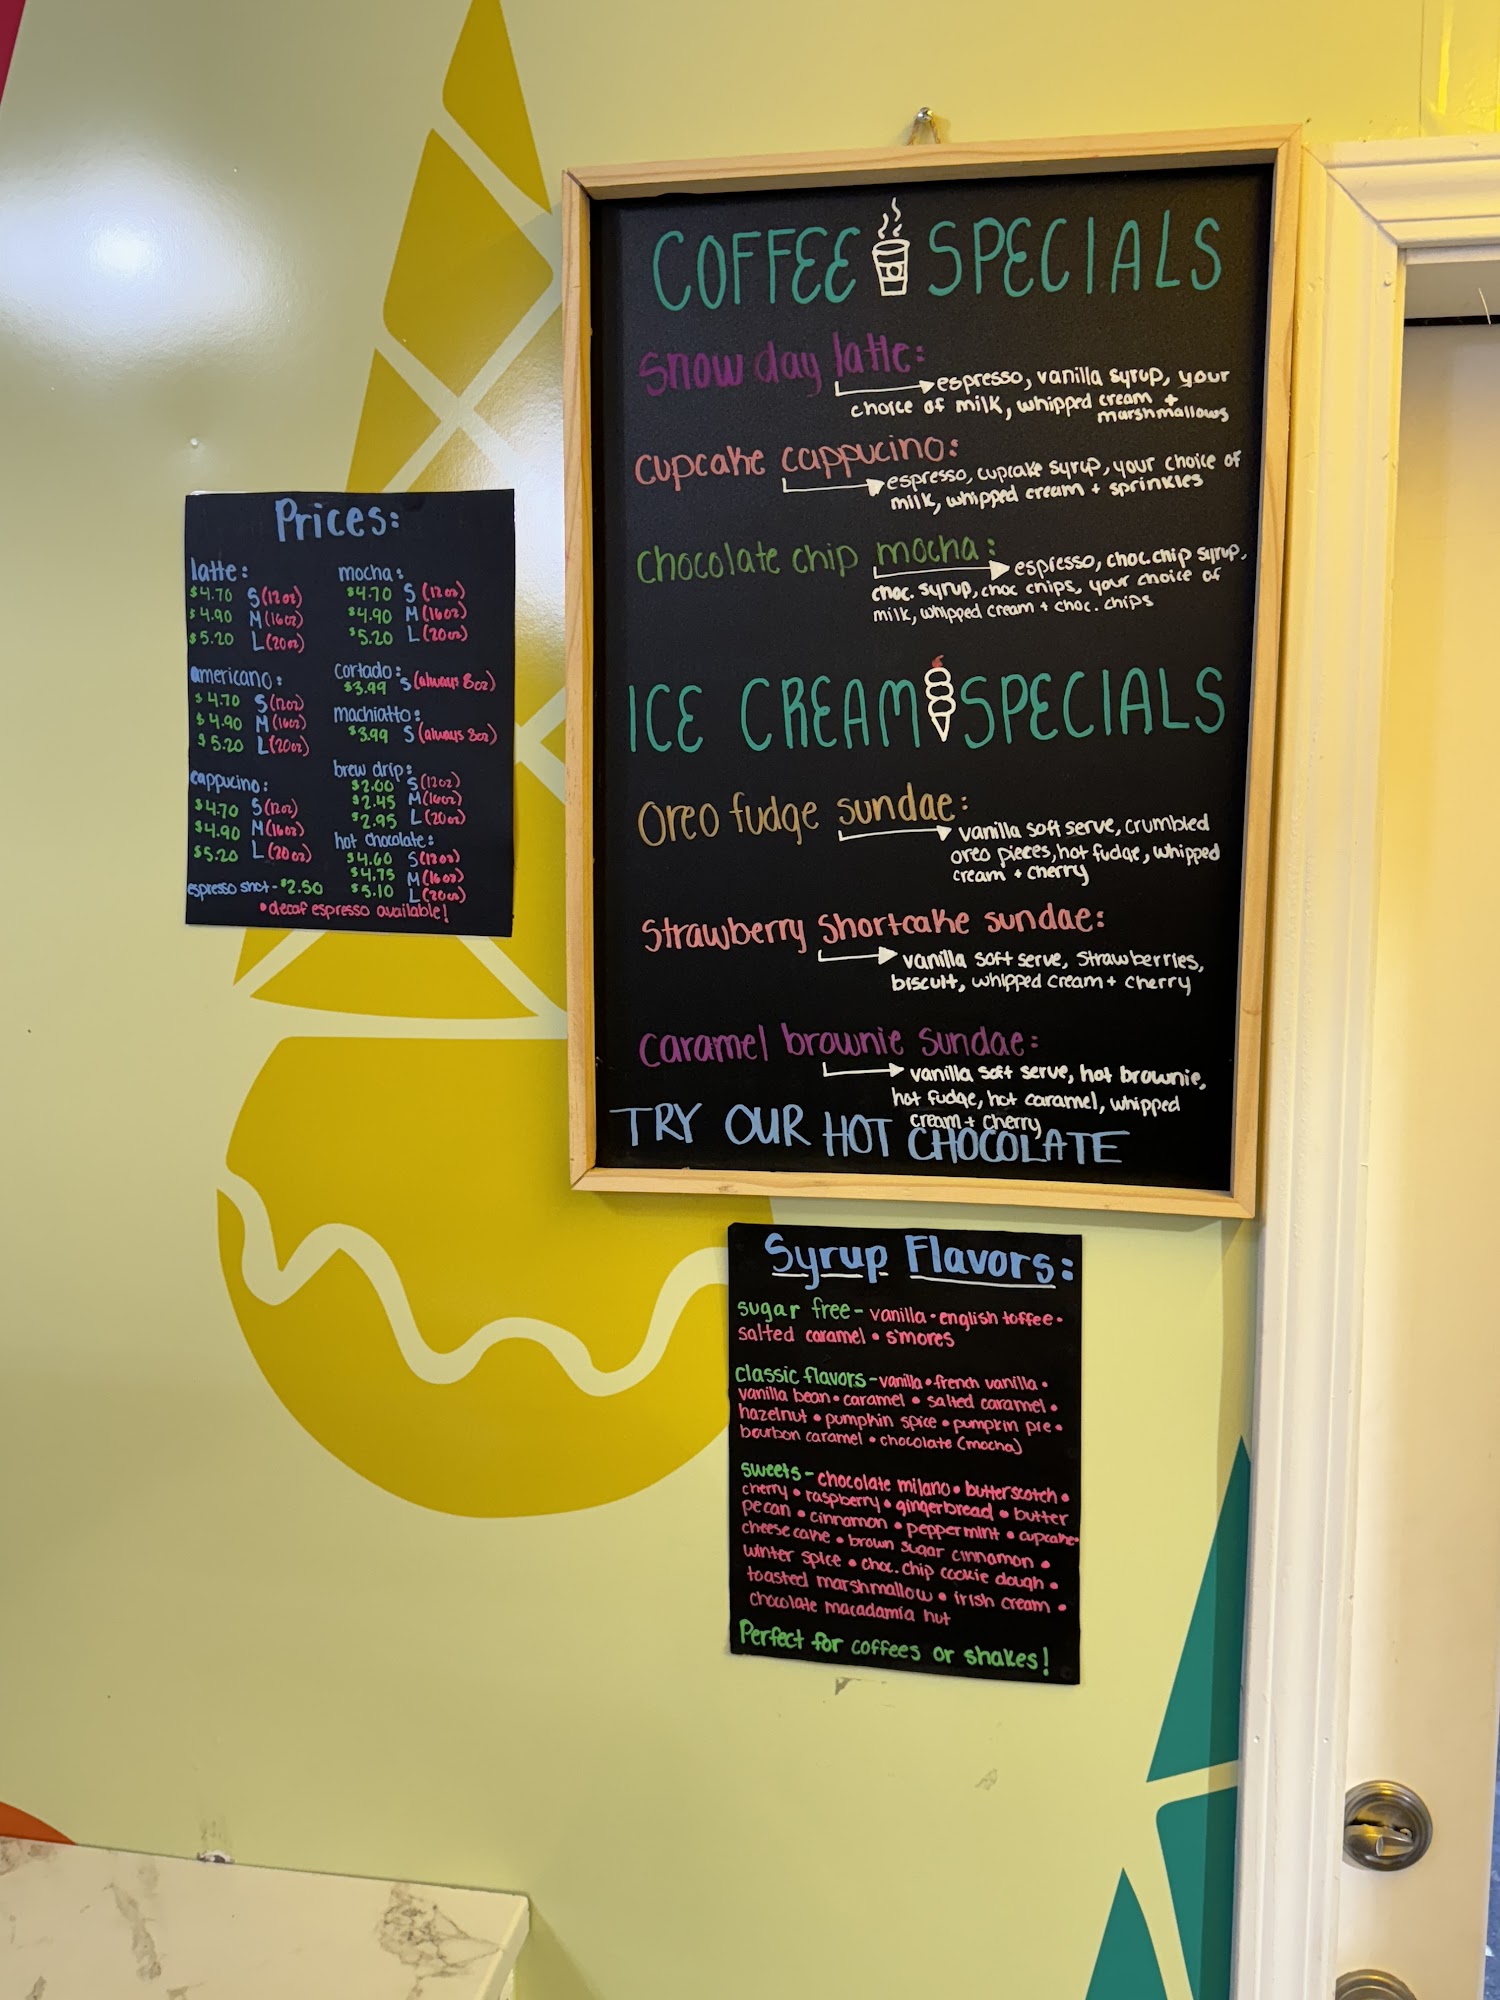 COFFEE SPECIALS
snow day latte:
espresso, vanilla syrup, your
choice of milk, whipped cream +
marshmallows
cupcake cappucino:
espresso, cupcake syrup, your choice of
milk, whipped cream + sprinkles
chocolate chip mocha:
espresso, choc.chip syrup,
choc. syrup, choc chips, your choice of
milk, whipped cream + choc. chips
ICE CREAM SPECIALS
Oreo fudge sundae:
vanilla soft serve, crumbled
oreo pieces, hot fudge, whipped
cream + cherry
Strawberry Shortcake sundae:
vanilla soft serve, strawberries,
biscuit, whipped cream + cherry
caramel brownie sundae:
vanilla soft serve, hot brownie,
hot fudge, hot caramel, whipped
cream + cherry
TRY OUR HOT CHOCOLATE
Prices:
latte:
$4.70 S (12oz)
$4.90 M (16oz)
$5.20 L (20oz)
americano:
$4.70 S (12oz)
$4.90 M (16oz)
$5.20 L (20oz)
cappucino:
$4.70 S (12oz)
$4.90 M (16oz)
$5.20 L (20oz)
espresso shot - $2.50
mocha:
$4.70 S (12oz)
$4.90 M (16oz)
$5.20 L (20oz)
cortado:
$3.99 S (always 8oz)
machiatto:
$3.99 S (always 8oz)
brew drip:
$2.00 S (12oz)
$2.45 M (16oz)
$2.95 L (20oz)
hot chocolate:
$4.60 S (12oz)
$4.75 M (16oz)
$5.10 L (20oz)
•decaf espresso available!
Syrup Flavors:
sugar free - vanilla • english toffee •
salted caramel • s'mores
classic flavors - vanilla • french vanilla •
vanilla bean • caramel • salted caramel •
hazelnut • pumpkin spice • pumpkin pie •
bourbon caramel • chocolate (mocha)
sweets - chocolate milano • butterscotch •
cherry • raspberry • gingerbread • butter
pecan • cinnamon • peppermint • cupcake •
cheesecake • brown sugar cinnamon •
winter spice • choc. chip cookie dough •
toasted marshmallow • irish cream •
chocolate macadamia nut
Perfect for coffees or shakes!